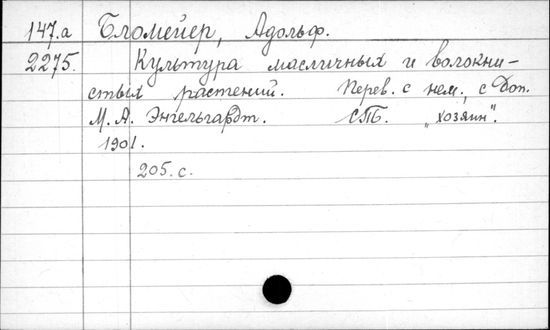 147.а Бломейер, Адольф.
2275. Культура масличных и волокни-
стых растений. Перев. с нем., с доп.
М. А. Энгельгардт. СПБ. „Хозяин".
1901.
205. с.